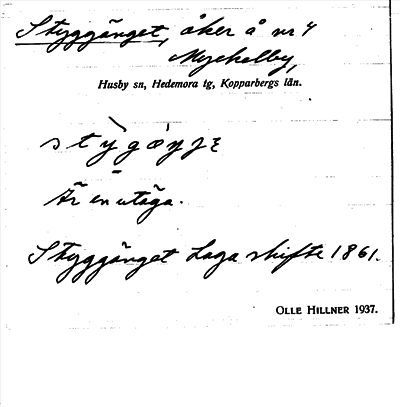 Styggänget, åker å nr 4
Myckelby,
Husby sn, Hedemora tg, Kopparbergs län.
Är en utäga.
Styggänget Laga skifte 1861.
OLLE HILLNER 1937.